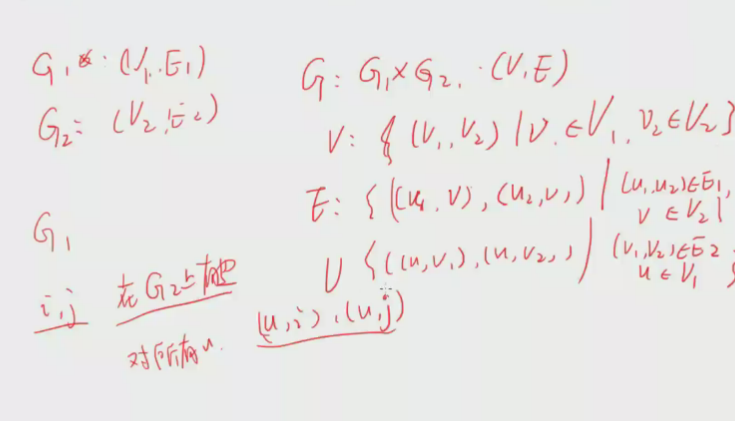 G₁: (V₁, E₁)
G₂: (V₂, E₂)
G: G₁×G₂. (V, E)
V: { (V₁, V₂) | v₁ ∈ V₁, v₂ ∈ V₂ }
E: { ((u₁, v), (u₂, v)) | (u₁, u₂) ∈ E₁,
v ∈ V₂ }
∪ { ((u, v₁), (u, v₂)) | (v₁, v₂) ∈ E₂
u ∈ V₁ }
G₁
i, j 在G₂上有边
对所有u. (u, i), (u, j)